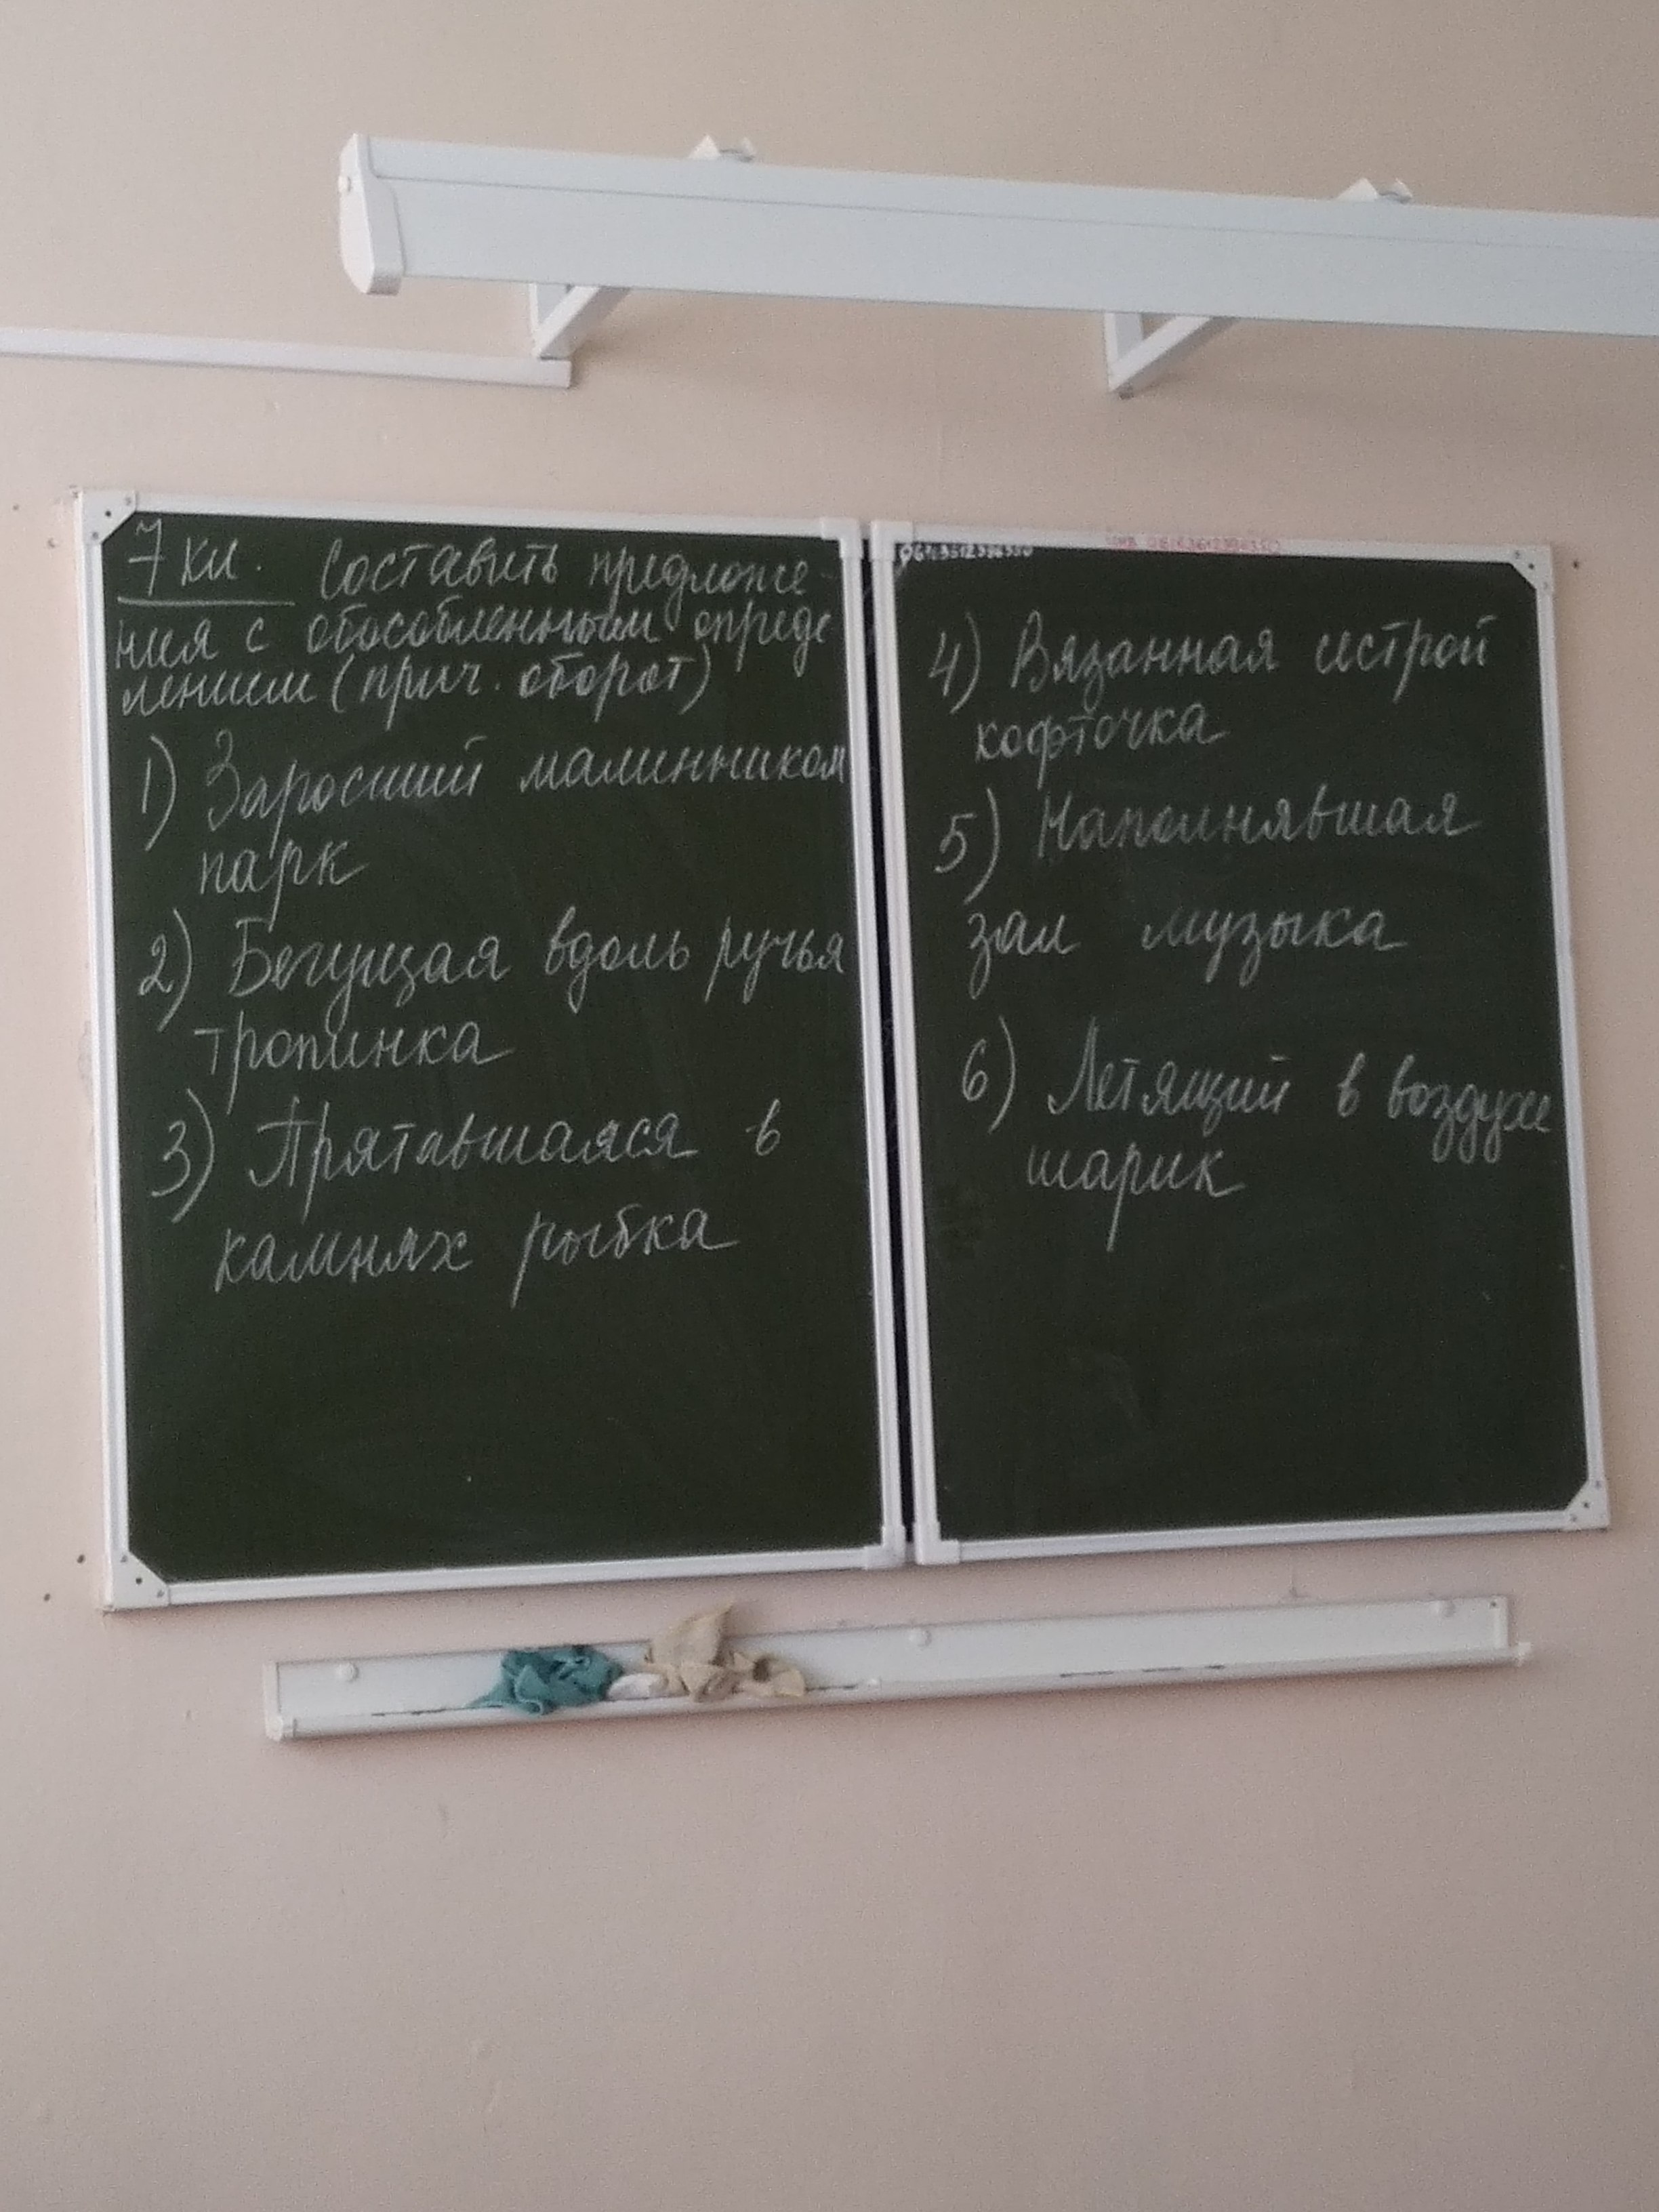 7 кл. Составить предложе-
ния с обособленным опреде
лением (прич. оборот)
1) Заросший малинником
парк
2) Бегущая вдоль ручья
тропинка
3) Прятавшаяся в
камнях рыбка
4) Вязанная сестрой
кофточка
5) Наполнявшая
зал музыка
6) Летящий в воздухе
шарик